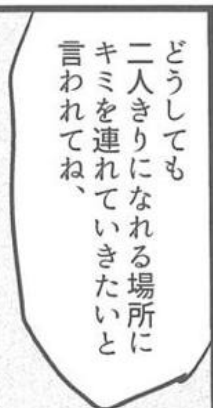 どうしても
二人きりになれる場所に
キミを連れていきたいと
言われてね、